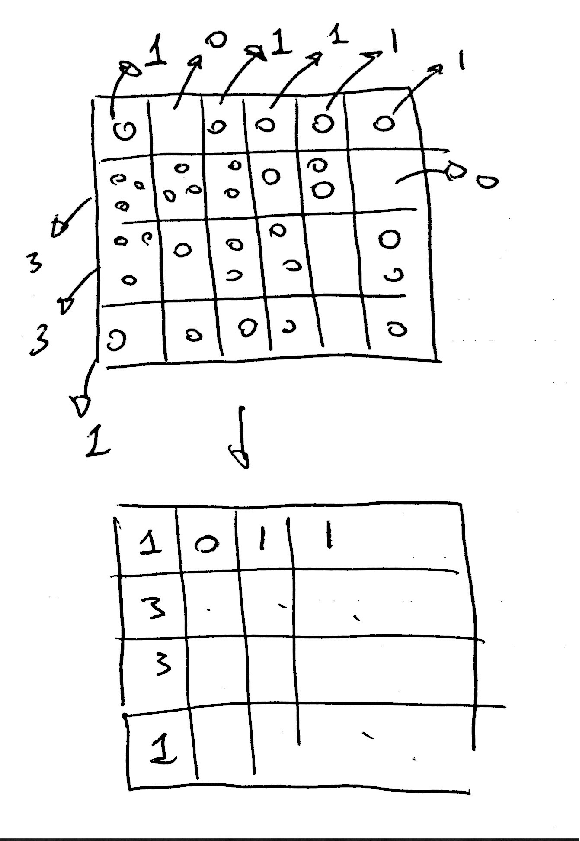 1 0 1 1 1 1
0
3
3
1
1 0 1 1
3
3
1